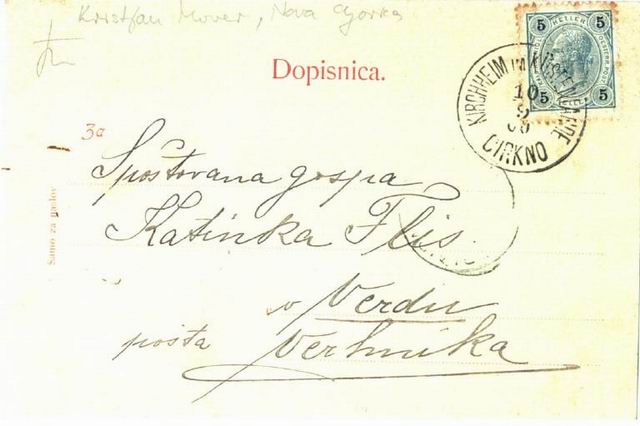 Kristfan Mover, Nova Gorica
5 KELLER 5
5 5
Dopisnica.
KIRCHHEIM i/A KÜSTENLANDE
10
9
00
CIRKNO
3a
Spoštovana gospa
Katinka Flis
v Verdu
pošta Verhnika
Samo za naslov